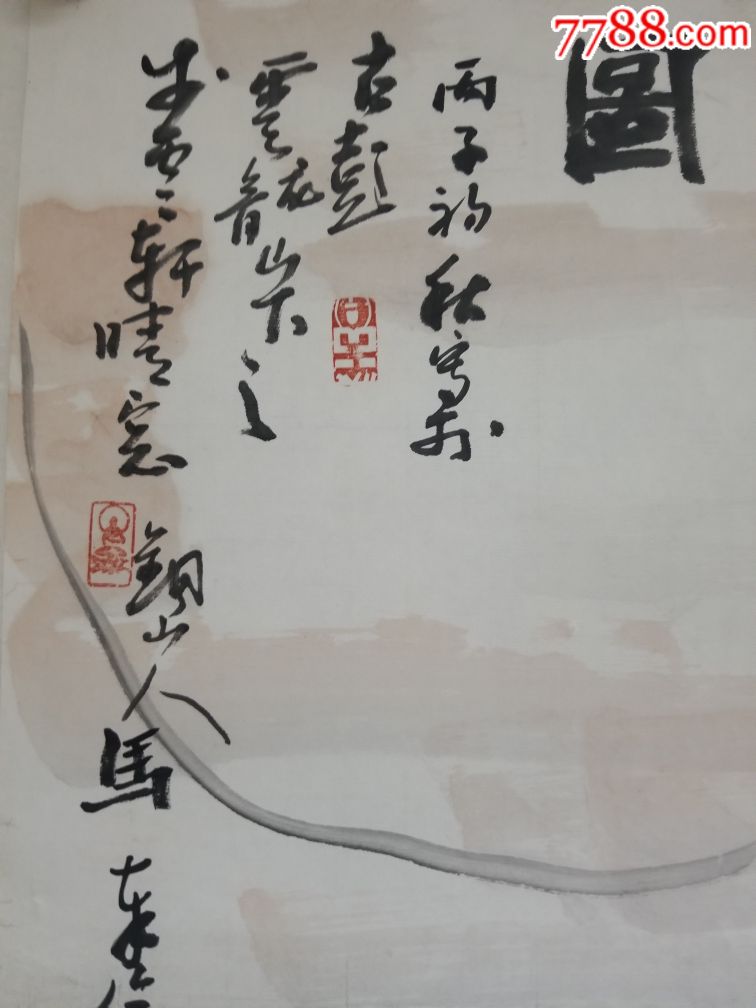 7788.com
圖
丙子初秋寫於
古彭
雲龍山下之
軒晴窓 銅山人馬奉